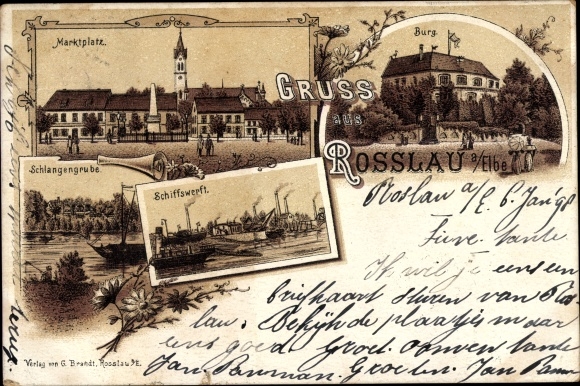 Marktplatz.
Burg.
GRUSS
aus
ROSSLAU a/Elbe
Schlangengrube.
Schiffswerft.
Roslau a/E. 6 Jan '98
Lieve tante
Ik wil je eens een
briefkaart sturen van Ros
lau. Bekijk de plaatjes maar
eens goed. Groet oom en tante
Jan Bauman. Groeten. Jan
Verlag von G. Brandt, Rosslau a/E.